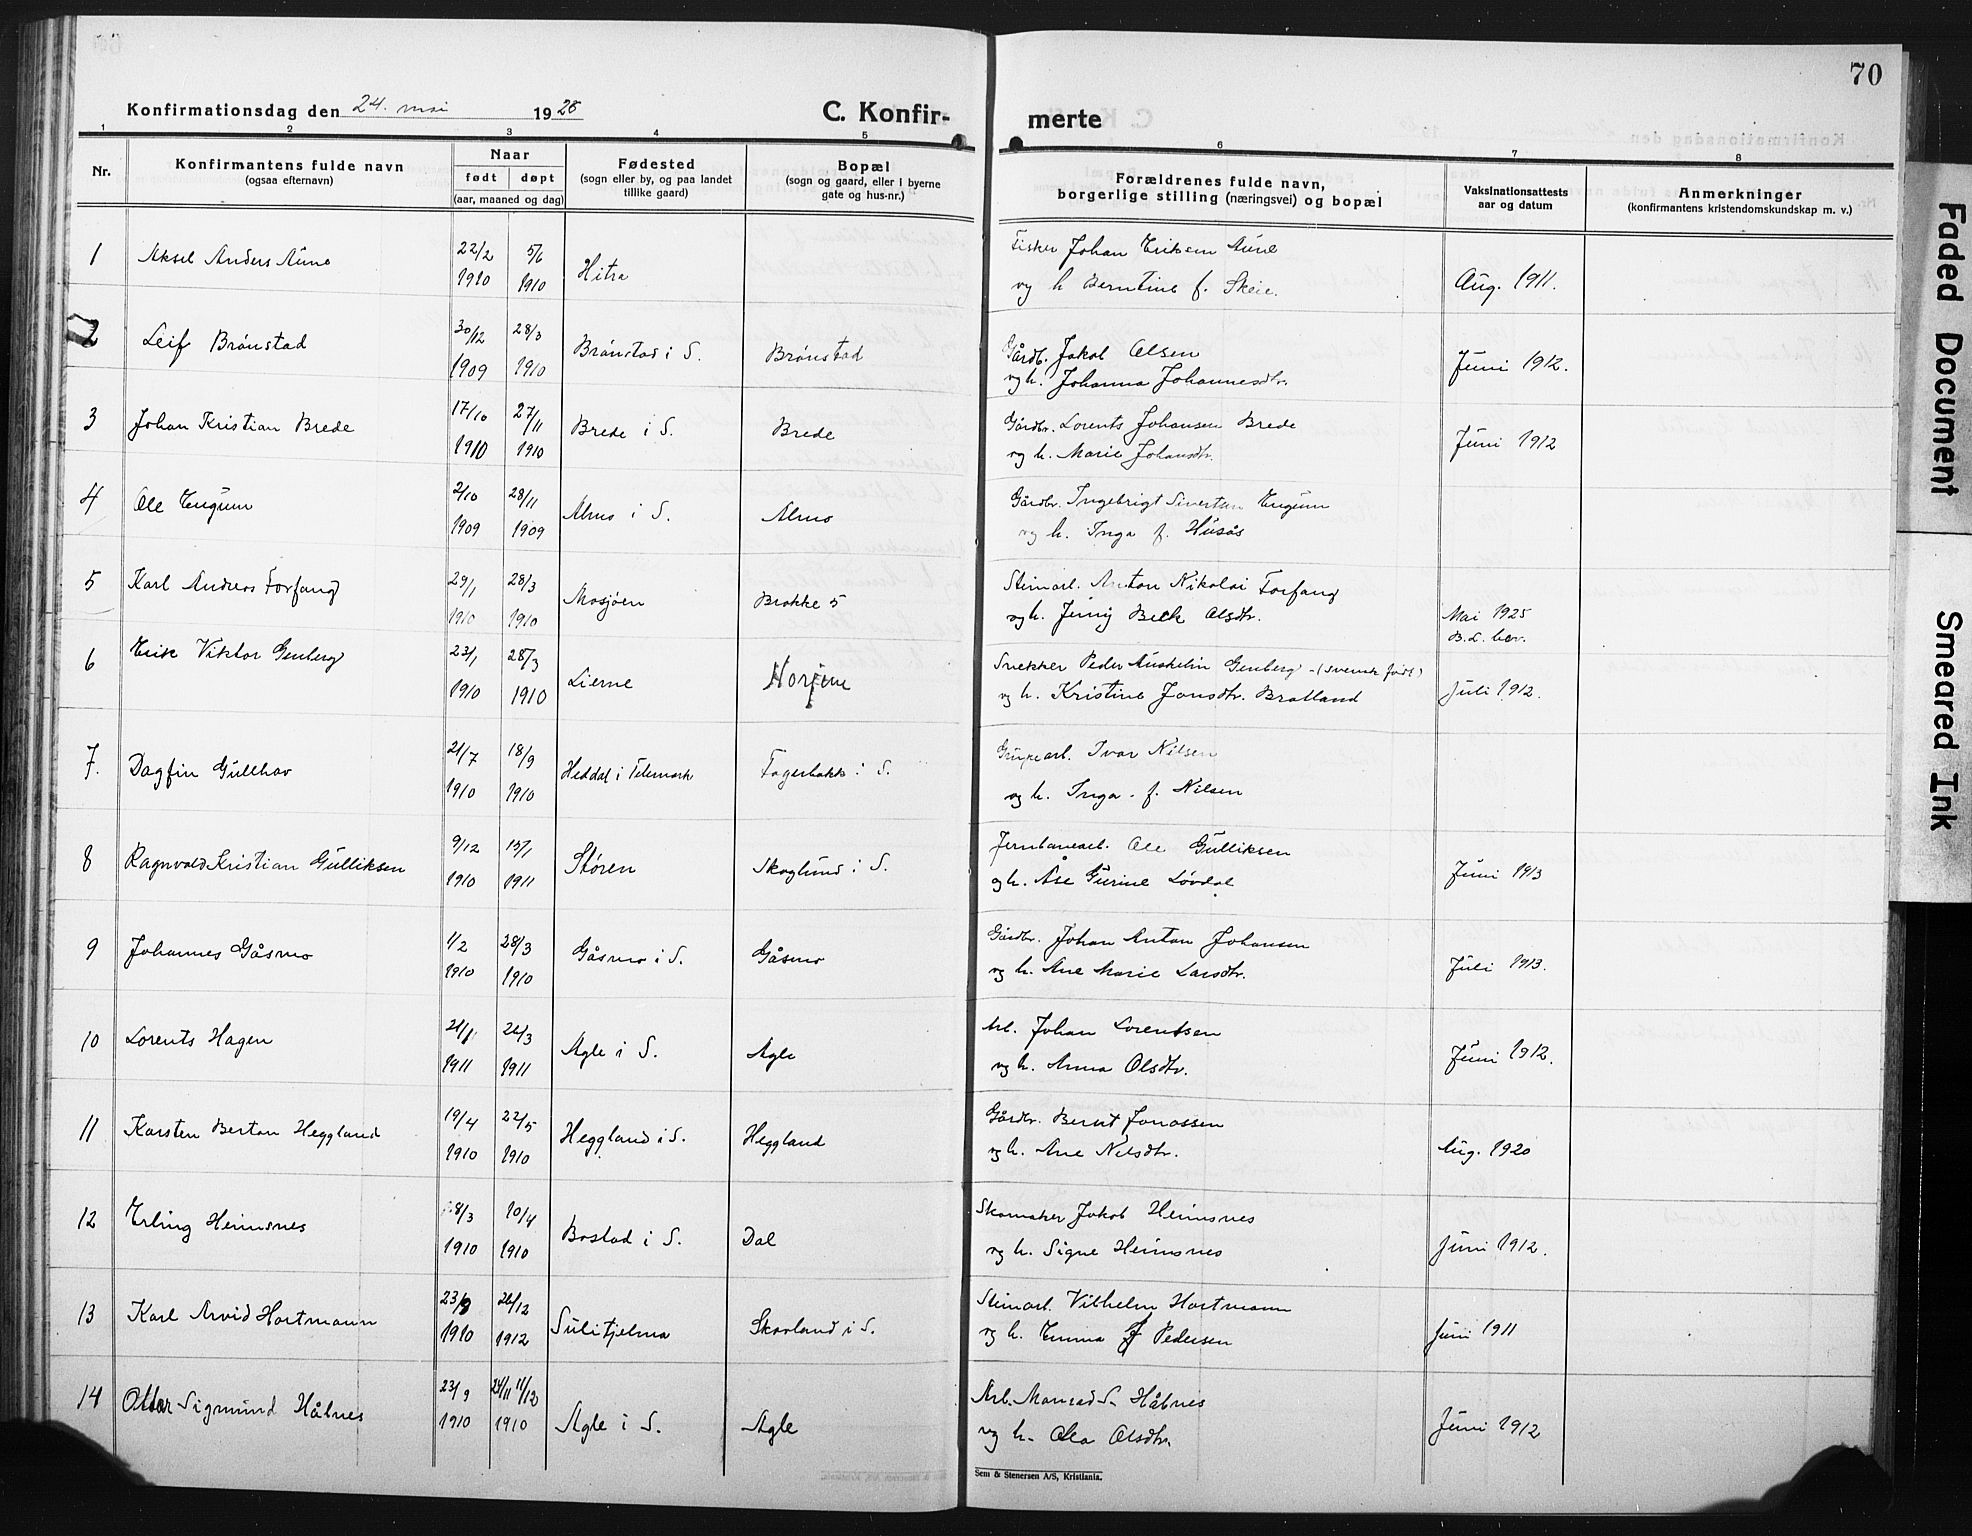 70
Konfirmationsdag den 24. mai 1925
C. Konfir-
merte
1 2 3 4 5 6 7 8
Nr.
Konfirmantens fulde navn
(ogsaa efternavn)
Naar
født døpt
(aar, maaned og dag)
Fødested
(sogn eller by, og paa landet
tillike gaard)
Bopæl
(sogn og gaard, eller i byerne
gate og hus-nr.)
Forældrenes fulde navn,
borgerlige stilling (næringsvei) og bopæl
Vaksinationsattests
aar og datum
Anmerkninger
(konfirmantens kristendomskundskap m. v.)
1 Aksel Anders Aune 22/2 1910 5/6 1910 Hitra
Fisker Johan Eriksen Aune
og h Berntine f. Skeie. Aug. 1911.
2 Leif Brønstad 30/12 1909 28/3 1910 Brønstad i S. Brønstad
Gårdb. Jakob Olsen
og h. Johanna Johannesdtr. Juni 1912.
3 Johan Kristian Brede 17/10 1910 27/11 1910 Brede i S. Brede
Gårdbr. Lorents Johansen Brede
og h. Marie Johansdtr. Juni 1912
4 Ole Engum 2/10 1909 28/11 1909 Almo i S. Almo
Gårdbr. Ingebrigt Sivertsen Engum
og h. Inga f. Husås
5 Karl Andreas Forfang 29/1 1910 28/3 1910 Mosjøen Brokke 5
Steinarb. Anton Nikolai Forfang
og h. Jenny Beck Olsdtr. Mai 1925
B. L. bev.
6 Erik Viktor Genberg 23/1 1910 28/3 1910 Lierne
Snekker Peder Genberg - (svensk født)
og h. Kristine Jonsdtr. Bratland Juli 1912.
7. Dagfin Gullhav 21/7 1910 18/9 1910 Heddal i Telemark Fagerbakk i S.
Grupearb. Ivar Nilsen
og h. Inga f. Nilsen
8 Ragnvald Kristian Gulliksen 9/12 1910 15/1 1911 Støren Skoglund i S.
Jernbanearb. Ole Gulliksen
og h. Åse Gurine Løvdal Juni 1913
9 Johannes Gåsmo 1/2 1910 28/3 1910 Gåsmo i S. Gåsmo
Gårdbr. Johan Anton Johansen
og h. Ane Marie Larsdtr. Juli 1913.
10 Lorents Hagen 21/1 1911 26/3 1911 Agle i S. Agle
Arb. Johan Lorentsen
og h. Anna Olsdtr. Juni 1912.
11 Karsten Berton Heggland 19/4 1910 22/5 1910 Heggland i S. Heggland
Gårdbr. Bernt Jonassen
og h. Ane Nilsdtr. Aug. 1920
12 Erling Heimsnes 8/3 1910 10/4 1910 Bostad i S. Dal
Skomaker Jakob Heimsnes
og h. Signe Heimsnes Juni 1912.
13 Karl Arvid Hartmann 23/9 1910 26/12 1912 Sulitjelma Skarland i S.
Steinarb. Vilhelm Hartmann
og h. Emma f Pedersen Juni 1911
14 Ottar Sigmund Håbnes 23/9 1910 24/11 11/12 1910 Agle i S. Agle
Arb. Monrad S. Håbnes
og h. Olsdtr. Juni 1912
Sem & Stenersen A/S, Kristiania.
Faded Document
Smeared Ink